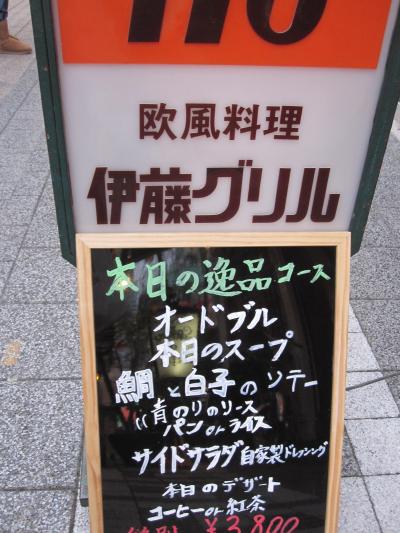 欧風料理
伊藤グリル
本日の逸品コース
オードブル
本日のスープ
鯛と白子のソテー
青のりのソース
パンorライス
サイドサラダ自家製ドレッシング
本日のデザート
コーヒーor紅茶
¥3,800